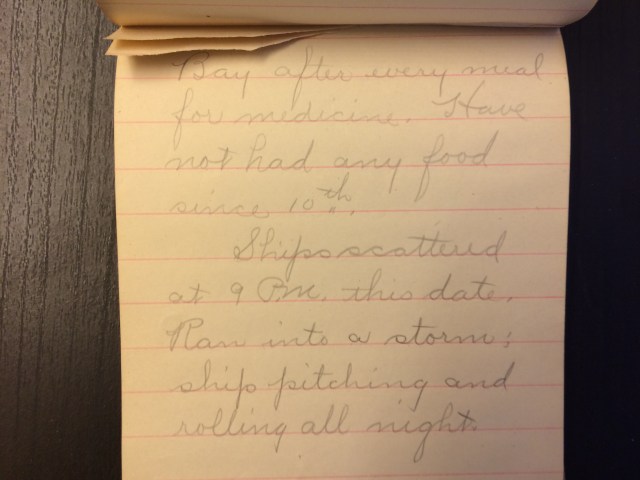 Bay after every meal
for medicine. Have
not had any food
since 10th.
Ships scattered
at 9 P.M. this date.
Ran into a storm;
ship pitching and
rolling all night.